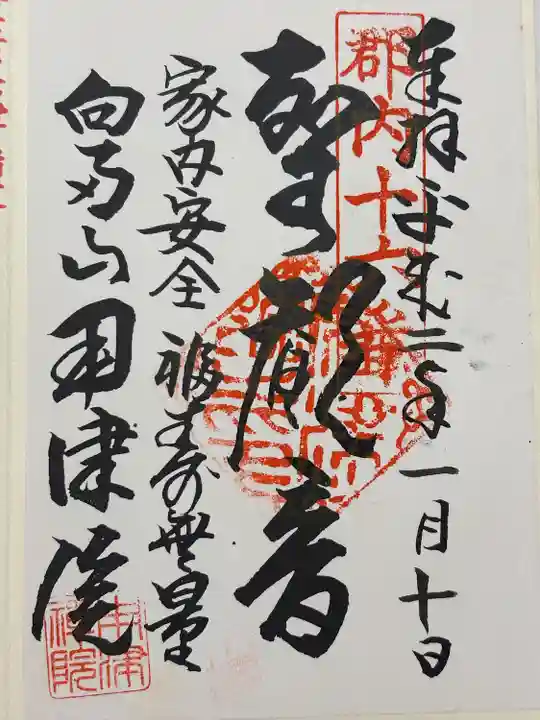 奉拝 平成二年一月十日
郡内十
聖観音
家内安全 福寿無量
向富山用津院
用津
禅院